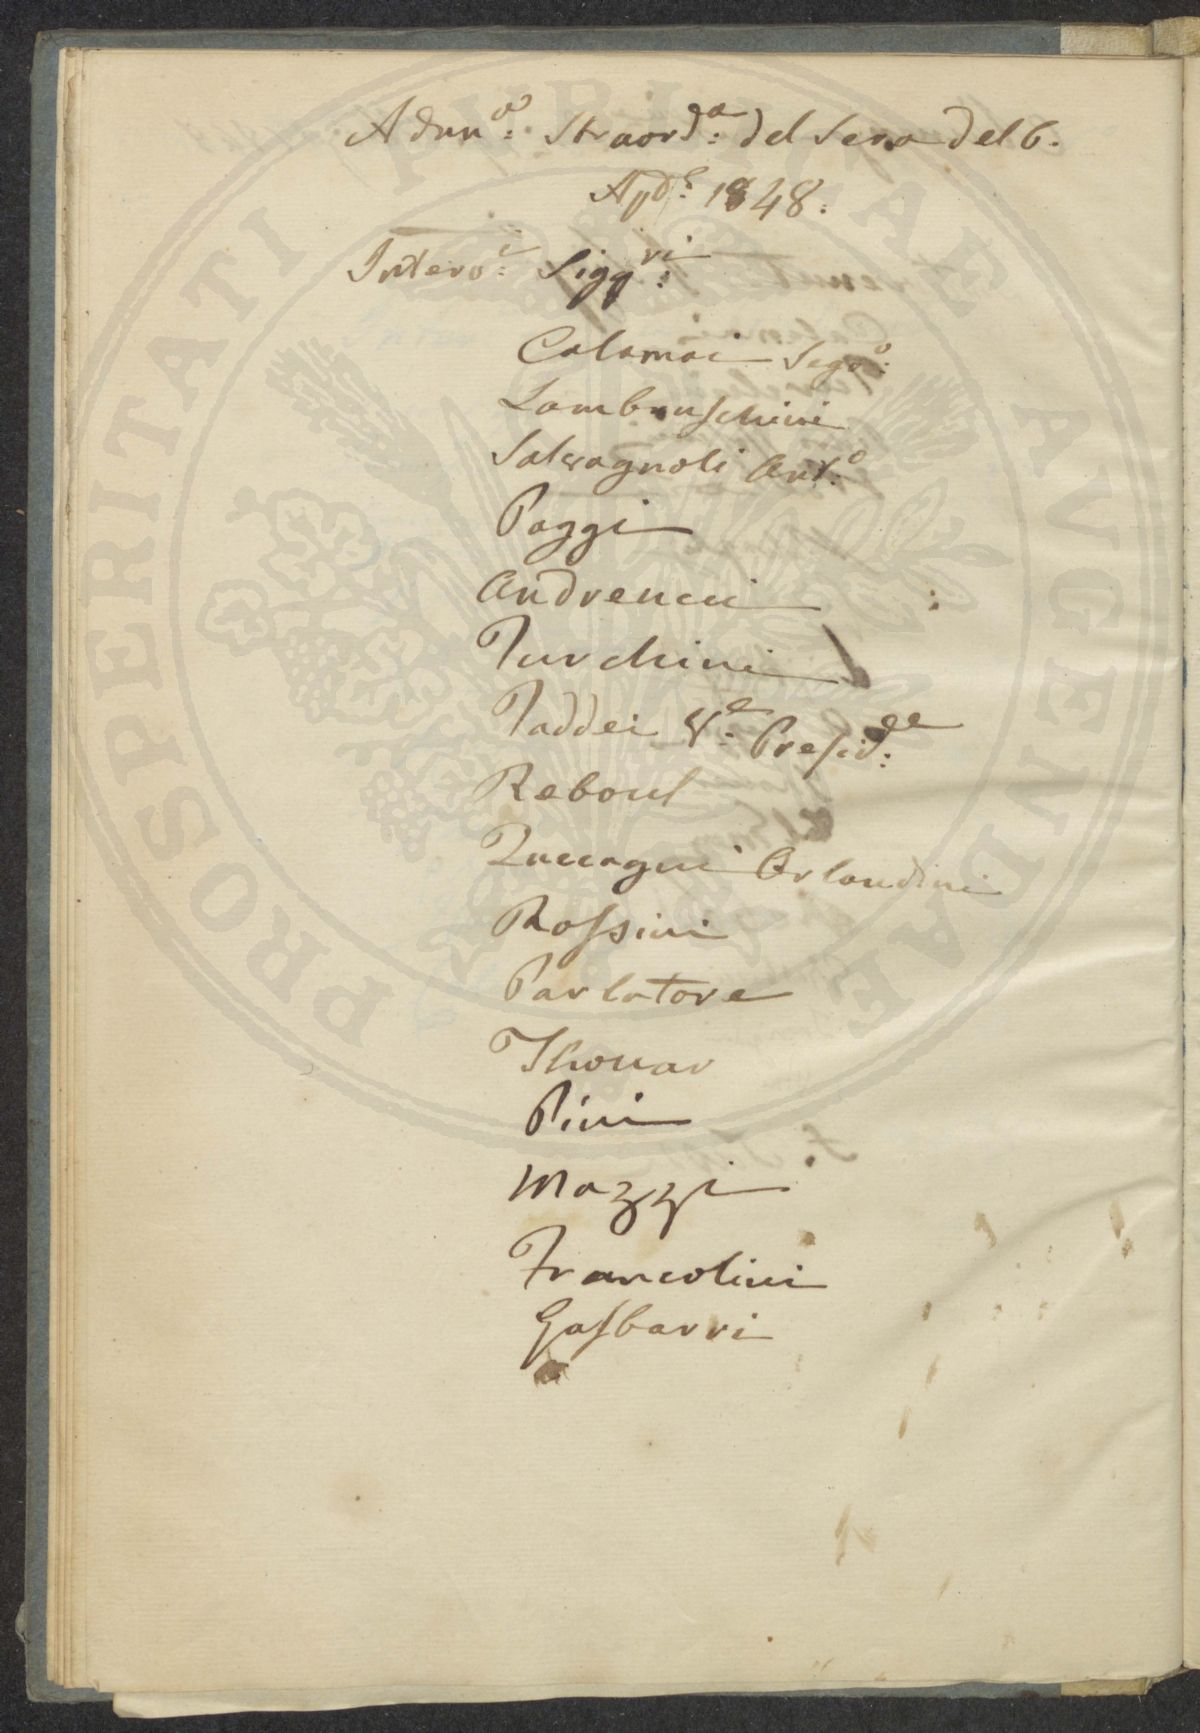 Adun.e: Straord.a: del Sera del 6.
Ap.le: 1848:
Interv.i: Sigg.ri:
Calamai Seg.o:
Lambruschini
Salvagnoli Ant.o:
Poggi
Andreucci
Turchini
Taddei V.e: Presid.te:
Reboul
Zuccagni Orlandini
Rossini
Parlatore
Thouar
Pini
Mazzi
Francolini
Gasbarri
PROSPERITATI PUBLICAE AUGENDAE